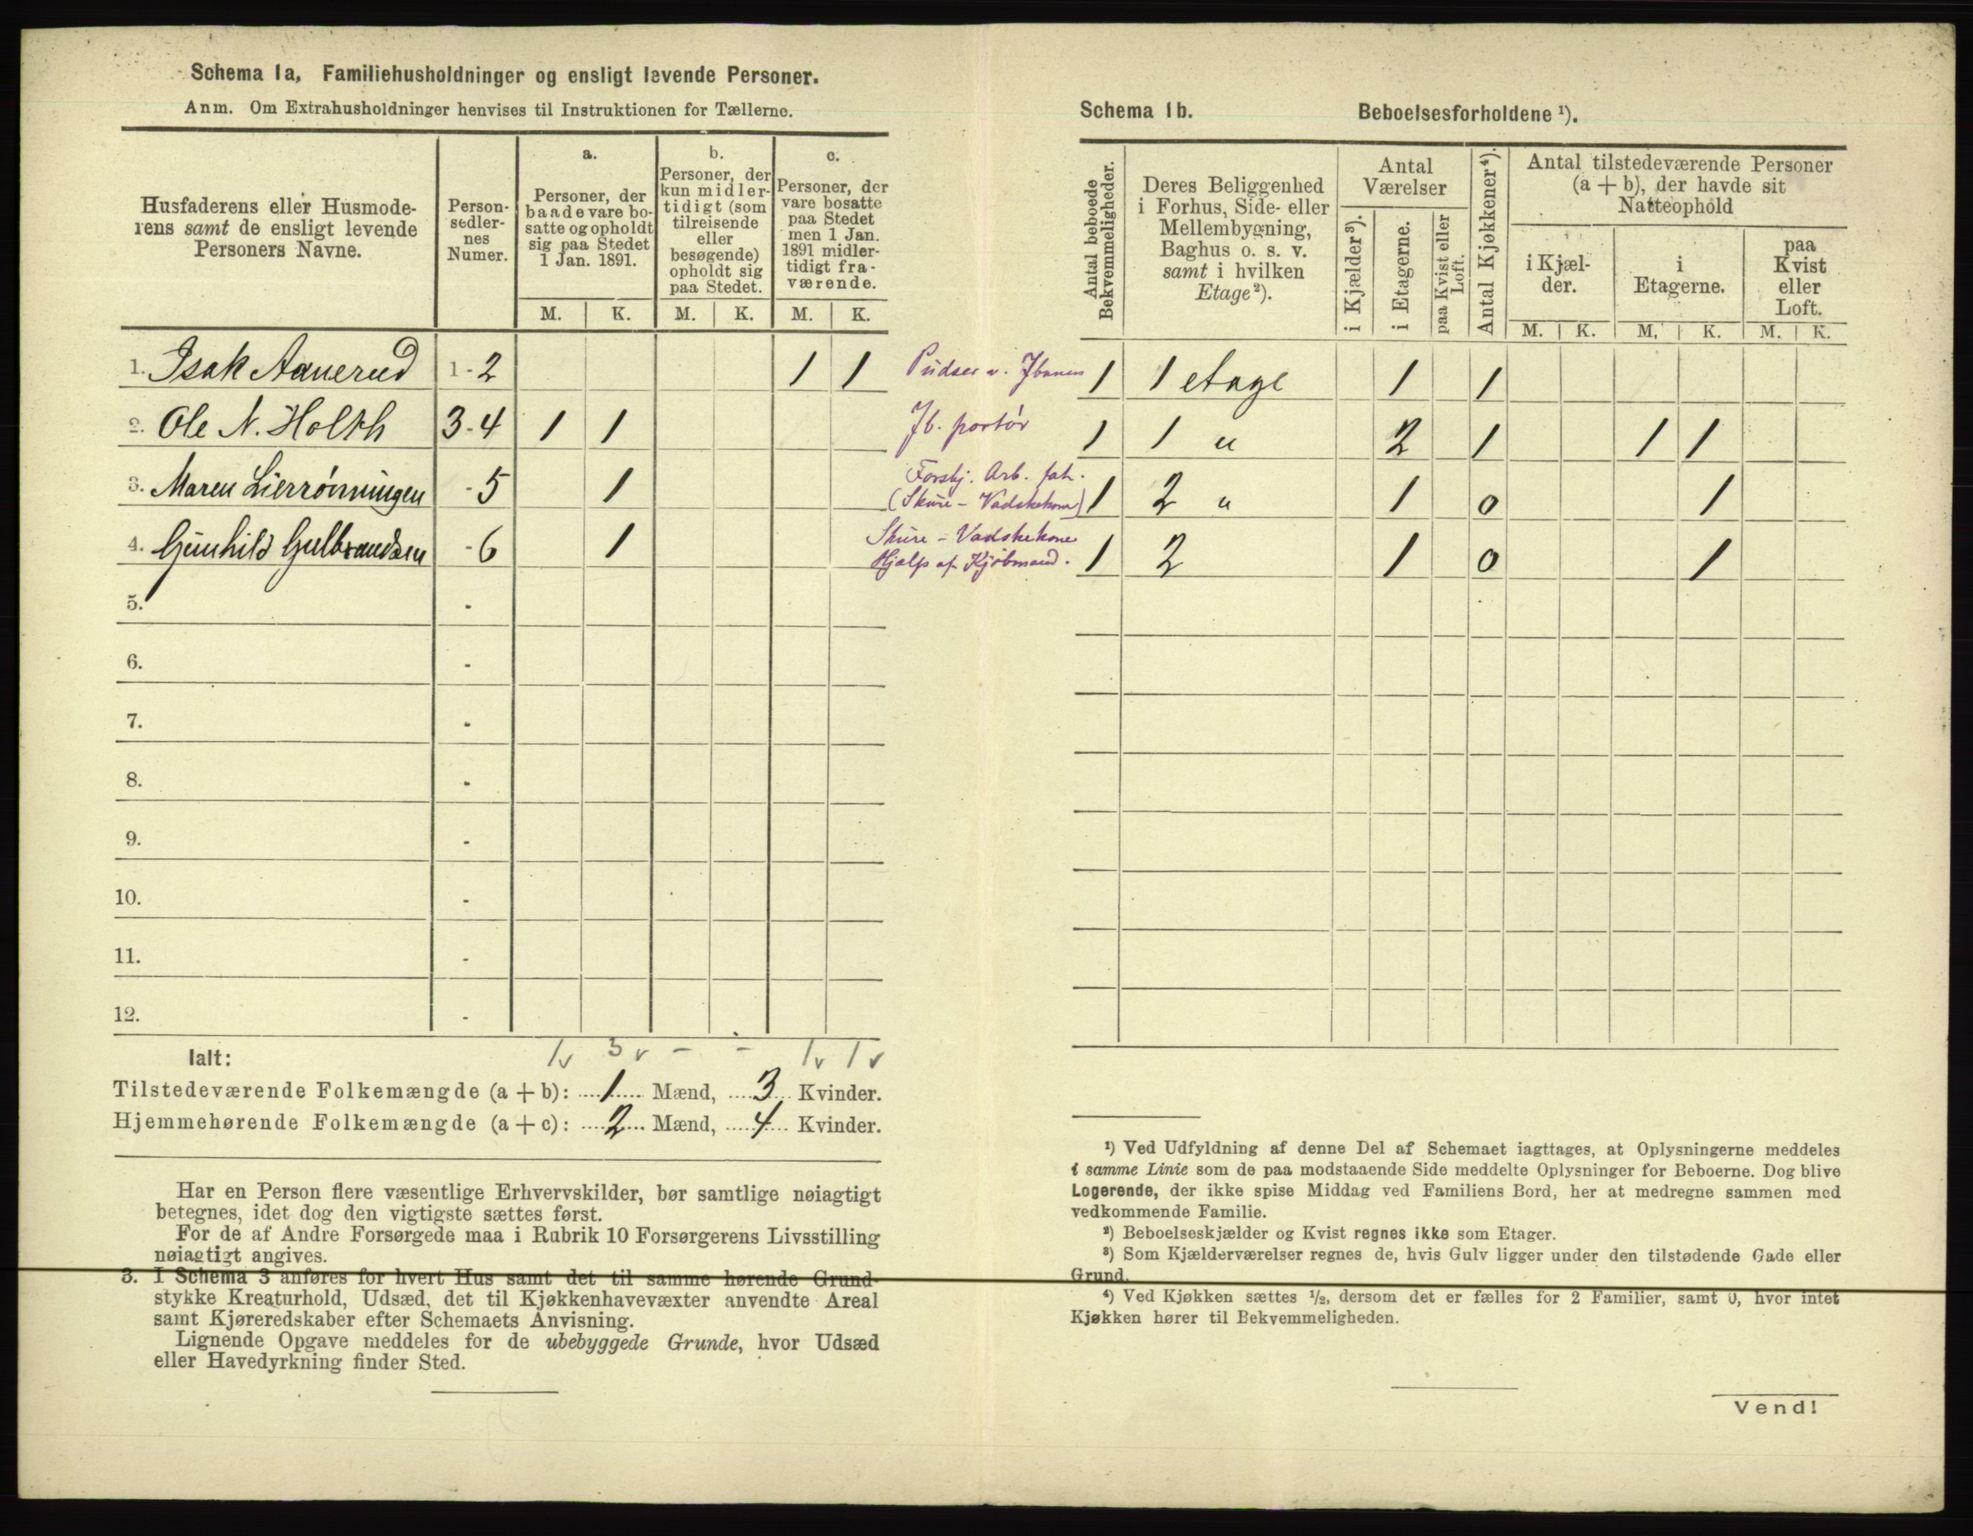 Schema 1a, Familiehusholdninger og ensligt levende Personer.
Anm. Om Extrahusholdninger henvises til Instruktionen for Tællerne.
Husfaderens eller Husmode-
rens samt de ensligt levende
Personers Navne.
Person-
sedler-
nes
Numer.
a.
Personer, der
baade vare bo-
satte og opholdt
sig paa Stedet
1 Jan. 1891.
b.
Personer, der
kun midler-
tidigt (som
tilreisende
eller
besøgende)
opholdt sig
paa Stedet.
c.
Personer, der
vare bosatte
paa Stedet
men 1 Jan.
1891 midler-
tidigt fra-
værende.
M. K. M. K. M. K.
1. Isak Aanerud 1-2 1 1
2. Ole N. Holth 3-4 1 1
3. Maren Lierrønningen -5 1
4. Gunhild Gulbrandsen -6 1
5. -
6. -
7. -
8. -
9. -
10. -
11. -
12. -
Ialt: 1v 3v - - 1v 1v
Tilstedeværende Folkemængde (a+b): 1 Mænd, 3 Kvinder.
Hjemmehørende Folkemængde (a+c): 2 Mænd, 4 Kvinder.
Har en Person flere væsentlige Erhvervskilder, bør samtlige nøiagtigt
betegnes, idet dog den vigtigste sættes først.
For de af Andre Forsørgede maa i Rubrik 10 Forsørgerens Livsstilling
nøiagtigt angives.
3. I Schema 3 anføres for hvert Hus samt det til samme hørende Grund-
stykke Kreaturhold, Udsæd, det til Kjøkkenhavevæxter anvendte Areal
samt Kjøreredskaber efter Schemaets Anvisning.
Lignende Opgave meddeles for de ubebyggede Grunde, hvor Udsæd
eller Havedyrkning finder Sted.
Schema 1b. Beboelsesforholdene ¹).
Antal beboede
Bekvemmeligheder.
Deres Beliggenhed
i Forhus, Side- eller
Mellembygning,
Baghus o. s. v.
samt i hvilken
Etage²).
Antal
Værelser
i Kjælder³).
i Etagerne.
paa Kvist eller
Loft.
Antal Kjøkkener⁴).
Antal tilstedeværende Personer
(a + b), der havde sit
Natteophold
i Kjæl-
der.
i
Etagerne.
paa
Kvist
eller
Loft.
M. K. M. K. M. K.
Pudser v. Jbanen 1 1 etage 1 1
Jb. portør 1 1 " 2 1 1 1
Forsbj. Arb. fat.
(Skure - Vadskekone) 1 2 " 1 0 1
Skure - Vadskekone
Hjælp af Kjøbmand. 1 2 1 0 1
¹) Ved Udfyldning af denne Del af Schemaet iagttages, at Oplysningerne meddeles
i samme Linie som de paa modstaaende Side meddelte Oplysninger for Beboerne. Dog blive
Logerende, der ikke spise Middag ved Familiens Bord, her at medregne sammen med
vedkommende Familie.
²) Beboelseskjælder og Kvist regnes ikke som Etager.
³) Som Kjælderværelser regnes de, hvis Gulv ligger under den tilstødende Gade eller
Grund.
⁴) Ved Kjøkken sættes ½, dersom det er fælles for 2 Familier, samt 0, hvor intet
Kjøkken hører til Bekvemmeligheden.
Vend!